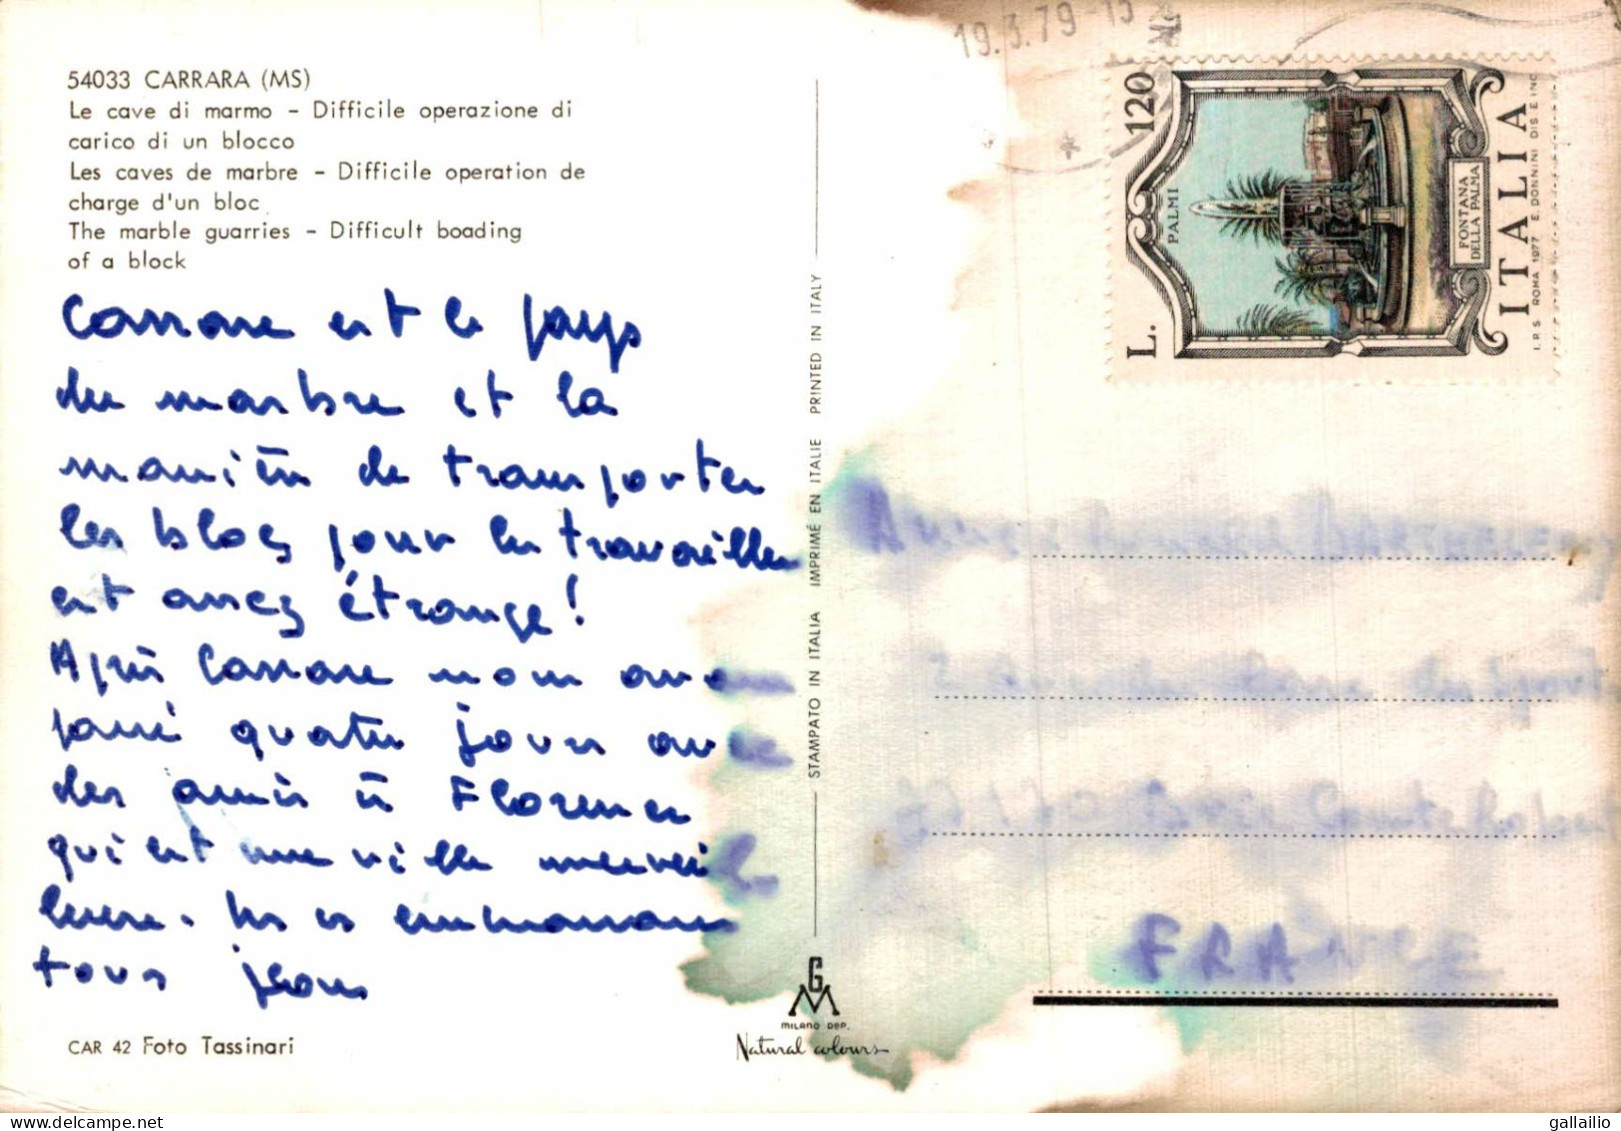 54033 CARRARA (MS)
Le cave di marmo - Difficile operazione di
carico di un blocco
Les caves de marbre - Difficile operation de
charge d'un bloc
The marble guarries - Difficult boading
of a block
Carrare est le pays
du marbre et la
manière de transporter
les blocs pour les travailler
est assez étrange!
Après Carrare nous avons
passé quatre jours avec
des amis à Florence
qui est une ville merveil
leuse. Je vs embrasse
tous Jean
CAR 42 Foto Tassinari
STAMPATO IN ITALIA IMPRIMÉ EN ITALIE PRINTED IN ITALY
GM
MILANO DEP.
Natural colours
19.3.79-15
L. 120
PALMI
FONTANA
DELLA PALMA
ITALIA
I.P.S. ROMA 1977 E. DONNINI DIS. E INC.
BARTHELEMY
Brie Comte Robert
FRANCE
gallailio